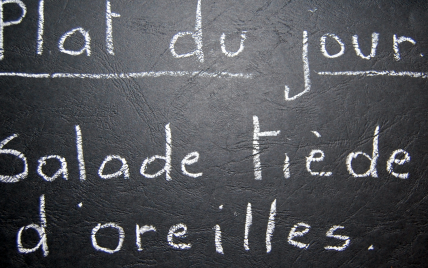 Plat du jour.
Salade tiède
d'oreilles.